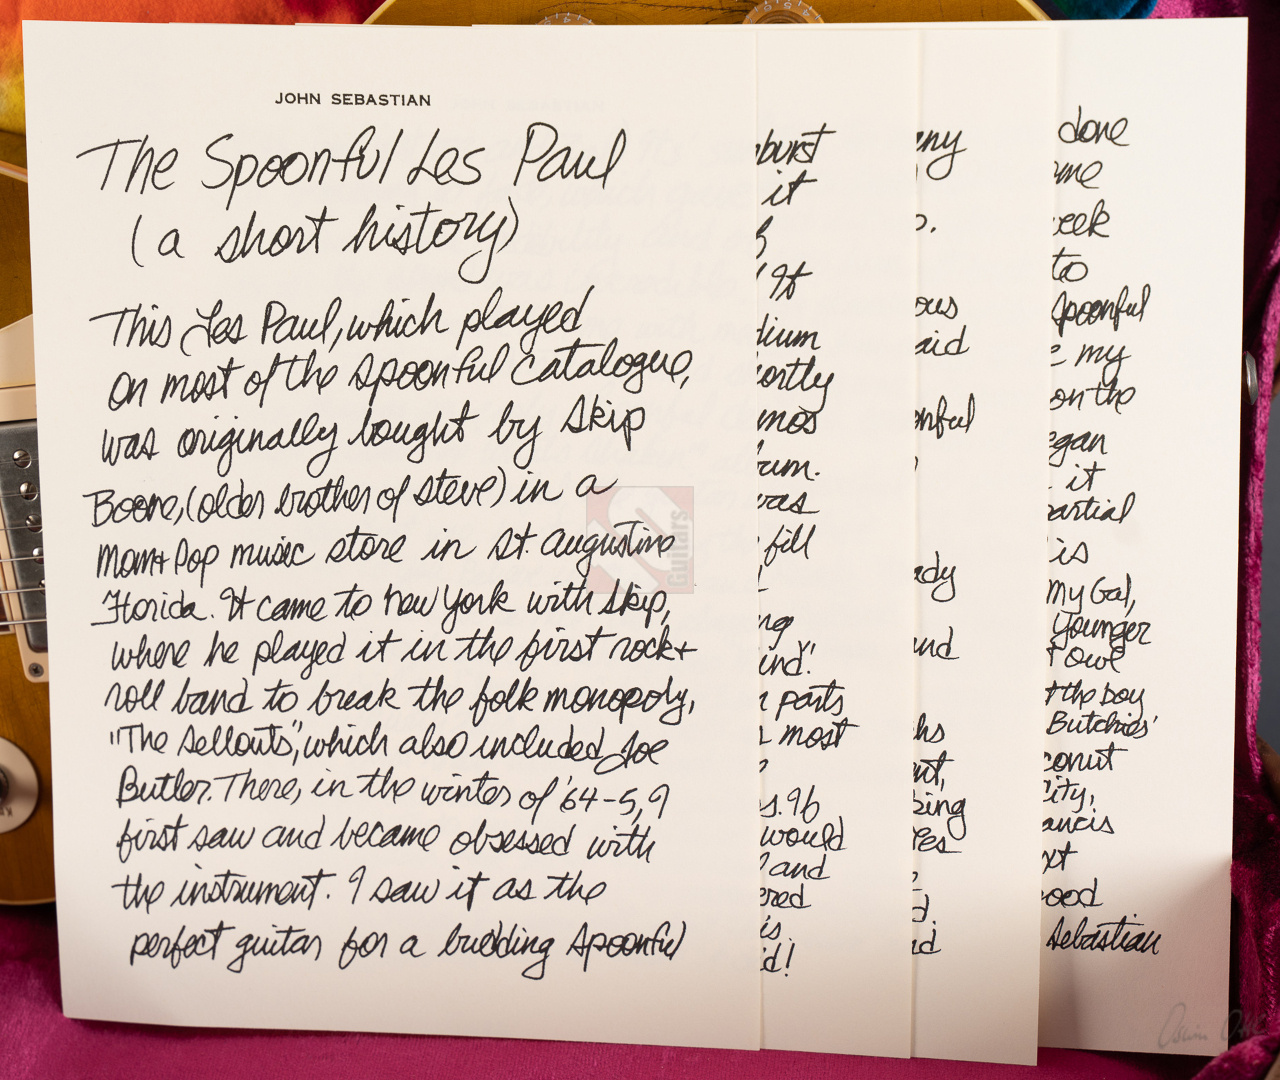 JOHN SEBASTIAN
The Spoonful Les Paul
(a short history)
This Les Paul, which played
on most of the Spoonful Catalogue,
was originally bought by Skip
Boone, (older brother of Steve) in a
Mom+Pop music store in St. Augustine
Florida. It came to New York with Skip,
where he played it in the first rock+
roll band to break the folk monopoly,
"The Sellouts", which also included Joe
Butler. There, in the winter of '64-5, I
first saw and became obsessed with
the instrument. I saw it as the
perfect guitar for a budding Spoonful
burst
it
It
dium
ortly
mos
bum.
was
fill
ng
ind."
parts
most
s. If
would
and
ered
is
id!
any
o.
ous
aid
onful
ady
and
hs
ut,
king
res
d.
nd
done
ome
week
to
Spoonful
e my
on the
egan
it
partial
is
My Gal,
Younger
t owe
t the boy
Butchies'
conut
City,
ancis
xt
ood
Sebastian
Guitars